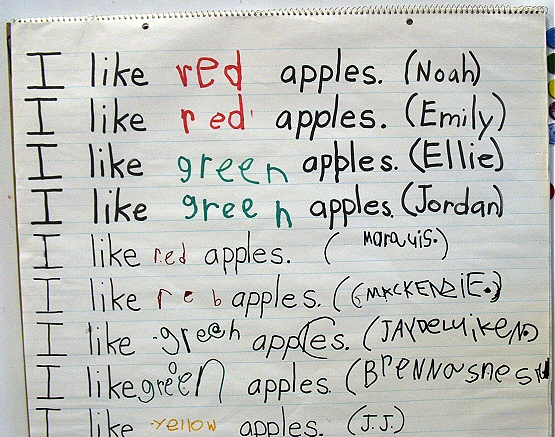 I like red apples. (Noah)
I like red apples. (Emily)
I like green apples. (Ellie)
I like green apples. (Jordan)
I like red apples. (Marquis.)
I like reb apples. (GMACKENZIE.)
I like green apples.
I like green apples.
I like yellow apples. (J.J.)